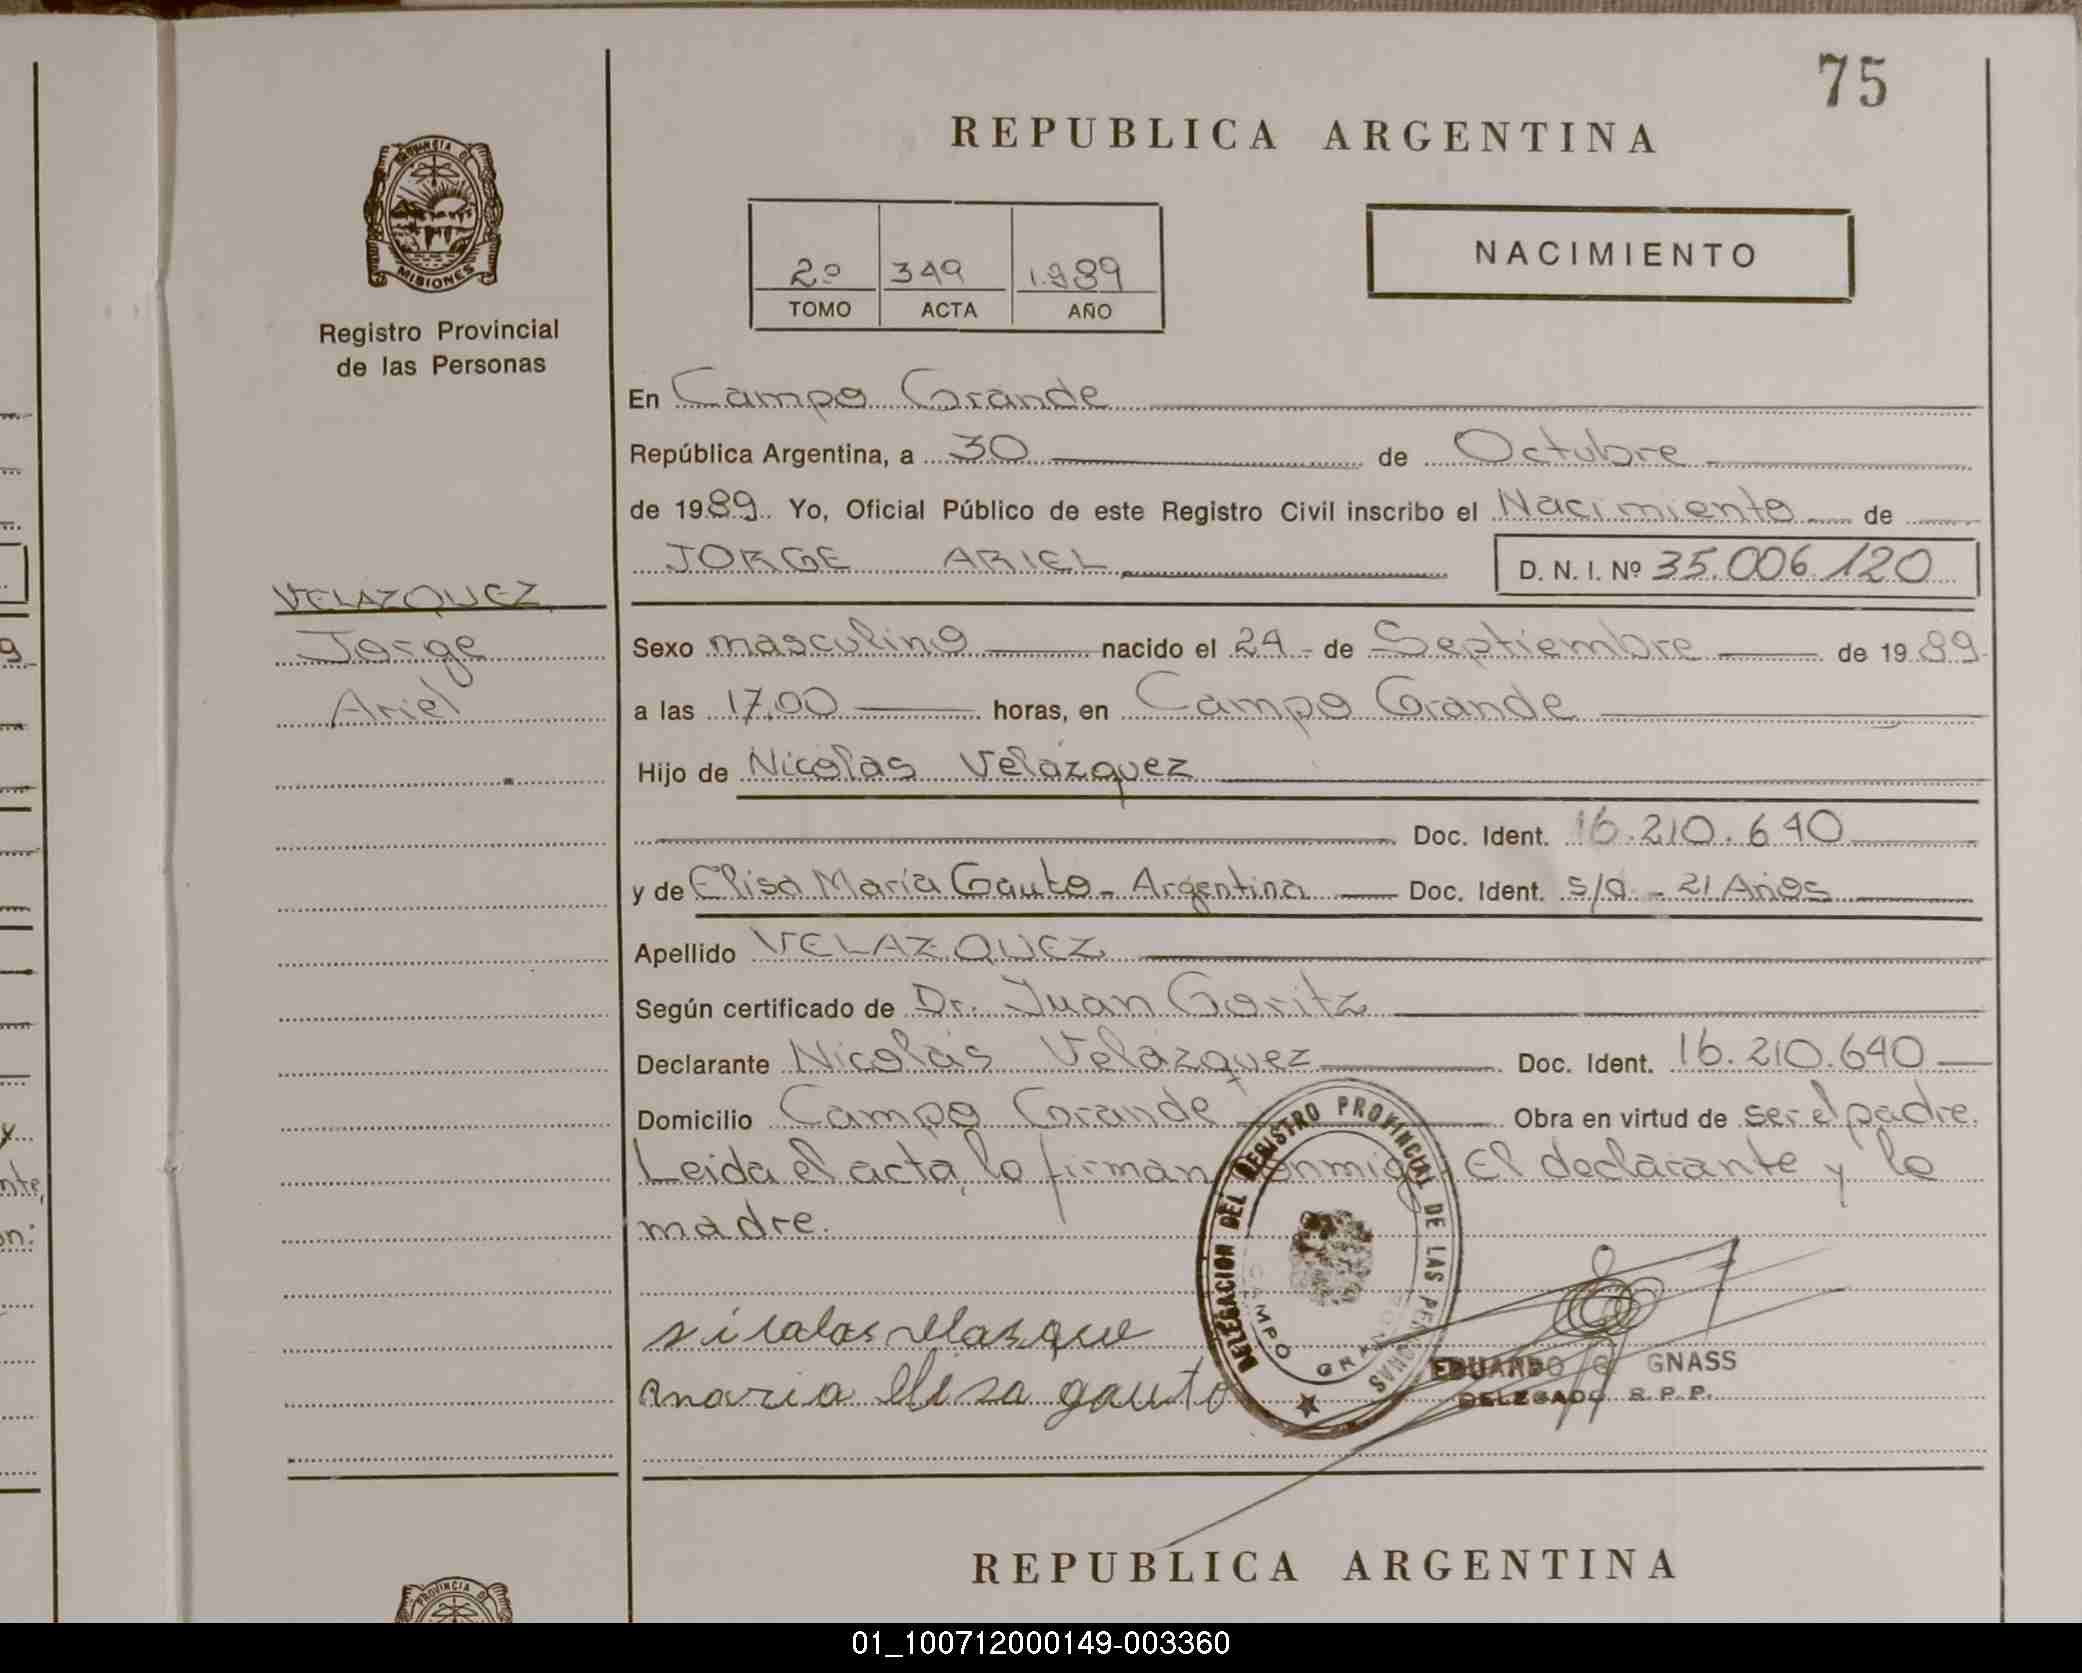 75
REPUBLICA ARGENTINA
PROVINCIA DE
MISIONES
Registro Provincial
de las Personas
2º 349 1.989
TOMO ACTA AÑO
NACIMIENTO
En Campo Grande
República Argentina, a 30 de Octubre
de 1989. Yo, Oficial Público de este Registro Civil inscribo el Nacimiento de
JORGE ARIEL D. N. I. Nº 35.006.120
VELAZQUEZ
Jorge
Ariel
Sexo masculino nacido el 24 de Septiembre de 1989
a las 17,00 horas, en Campo Grande
Hijo de Nicolas Velázquez
Doc. Ident. 16.210.640
y de Elisa María Gauto - Argentina Doc. Ident. s/a - 21 Años
Apellido VELAZQUEZ
Según certificado de Dr. Juan Goritz
Declarante Nicolás Velázquez Doc. Ident. 16.210.640
Domicilio Campo Grande Obra en virtud de ser el padre.
Leida el acta, lo firman conmigo El declarante y la
madre.
DELEGACION DEL REGISTRO PROVINCIAL DE LAS PERSONAS
CAMPO GRANDE
maria elisa gauto
EDUARDO GNASS
DELEGADO R.P.P.
REPUBLICA ARGENTINA
PROVINCIA DE
01_100712000149-003360